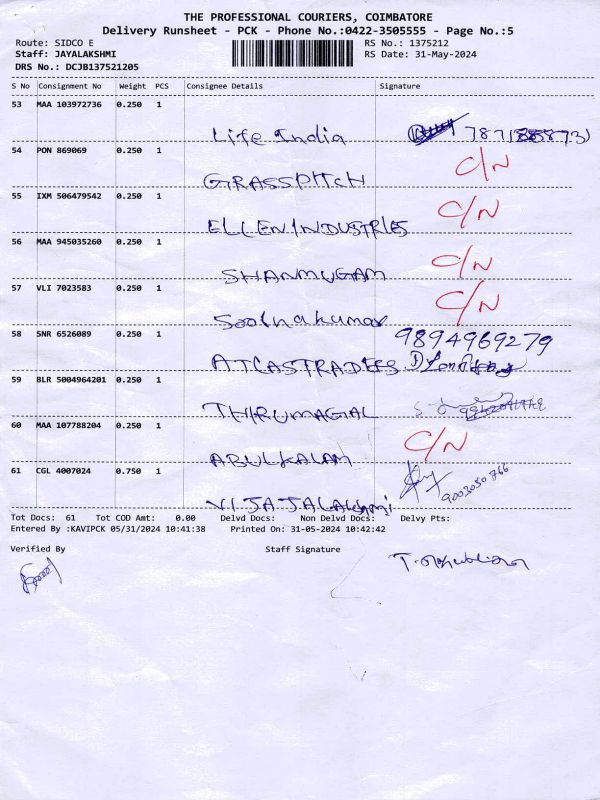 THE PROFESSIONAL COURIERS, COIMBATORE
Delivery Runsheet - PCK - Phone No.:0422-3505555 - Page No.:5
Route: SIDCO E RS No.: 1375212
Staff: JAYALAKSHMI RS Date: 31-May-2024
DRS No.: DCJB137521205
S No Consignment No Weight PCS Consignee Details Signature
53 MAA 103972736 0.250 1
Life India
54 PON 869069 0.250 1 C/N
GRASSPITCH
55 IXM 506479542 0.250 1 C/N
ELLEN INDUSTRIES
56 MAA 945035260 0.250 1 C/N
SHANMUGAM
57 VLI 7023583 0.250 1 C/N
58 SNR 6526089 0.250 1 9894969279
ATCASTRADERS
59 BLR 5004964201 0.250 1
THIRUMAGAL
60 MAA 107788204 0.250 1 C/N
ABULKALAM
61 CGL 4007024 0.750 1
Tot Docs: 61 Tot COD Amt: 0.00 Delvd Docs: Non Delvd Docs: Delvy Pts:
Entered By :KAVIPCK 05/31/2024 10:41:38 Printed On: 31-05-2024 10:42:42
Verified By Staff Signature